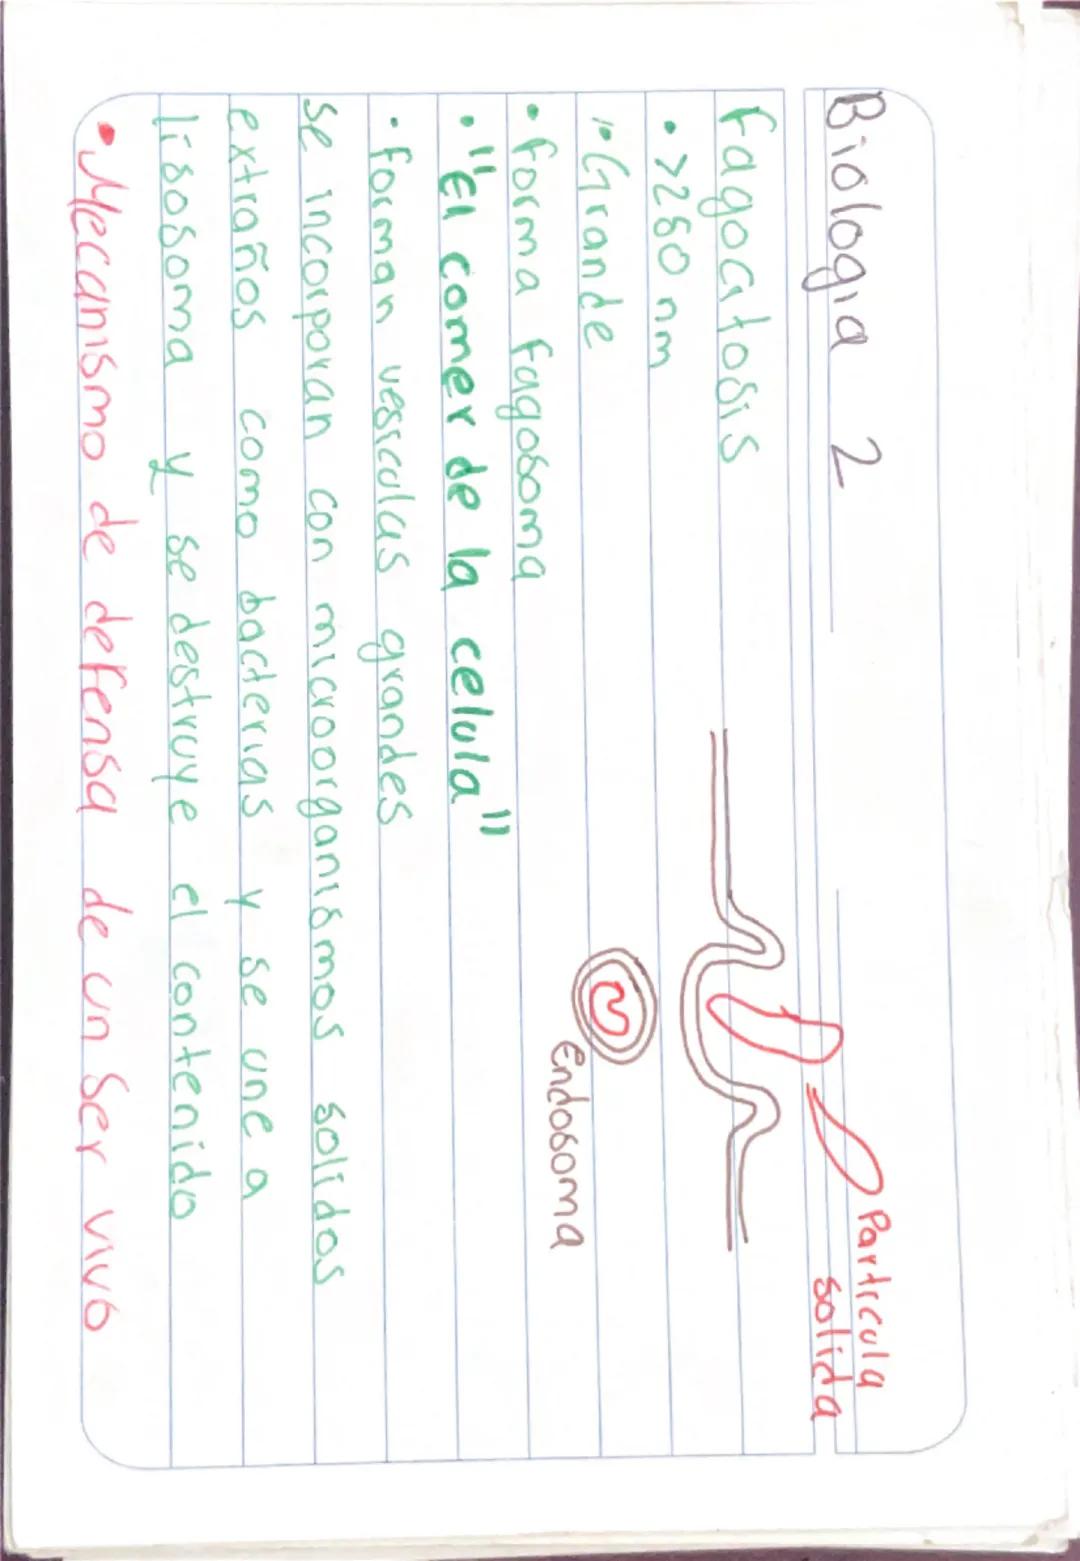 Biologia 2
Fagocitosis
• >280 nm
• Grande
• forma fagosoma
• "El comer de la celula"
• forman vesiculas grandes
se incorporan con microorganismos solidos
extraños como bacterias y se une a
lisosoma y se destruye el contenido
• Mecanismo de defensa de un ser vivo
Particula
solida
Endosoma